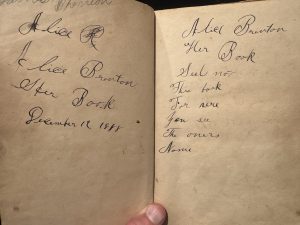 Alice R
Alice Bruxton
Her Book
December 12 1888
Alice Bruxton
Her Book
Seel not
This book
For here
You see
The oners
Name